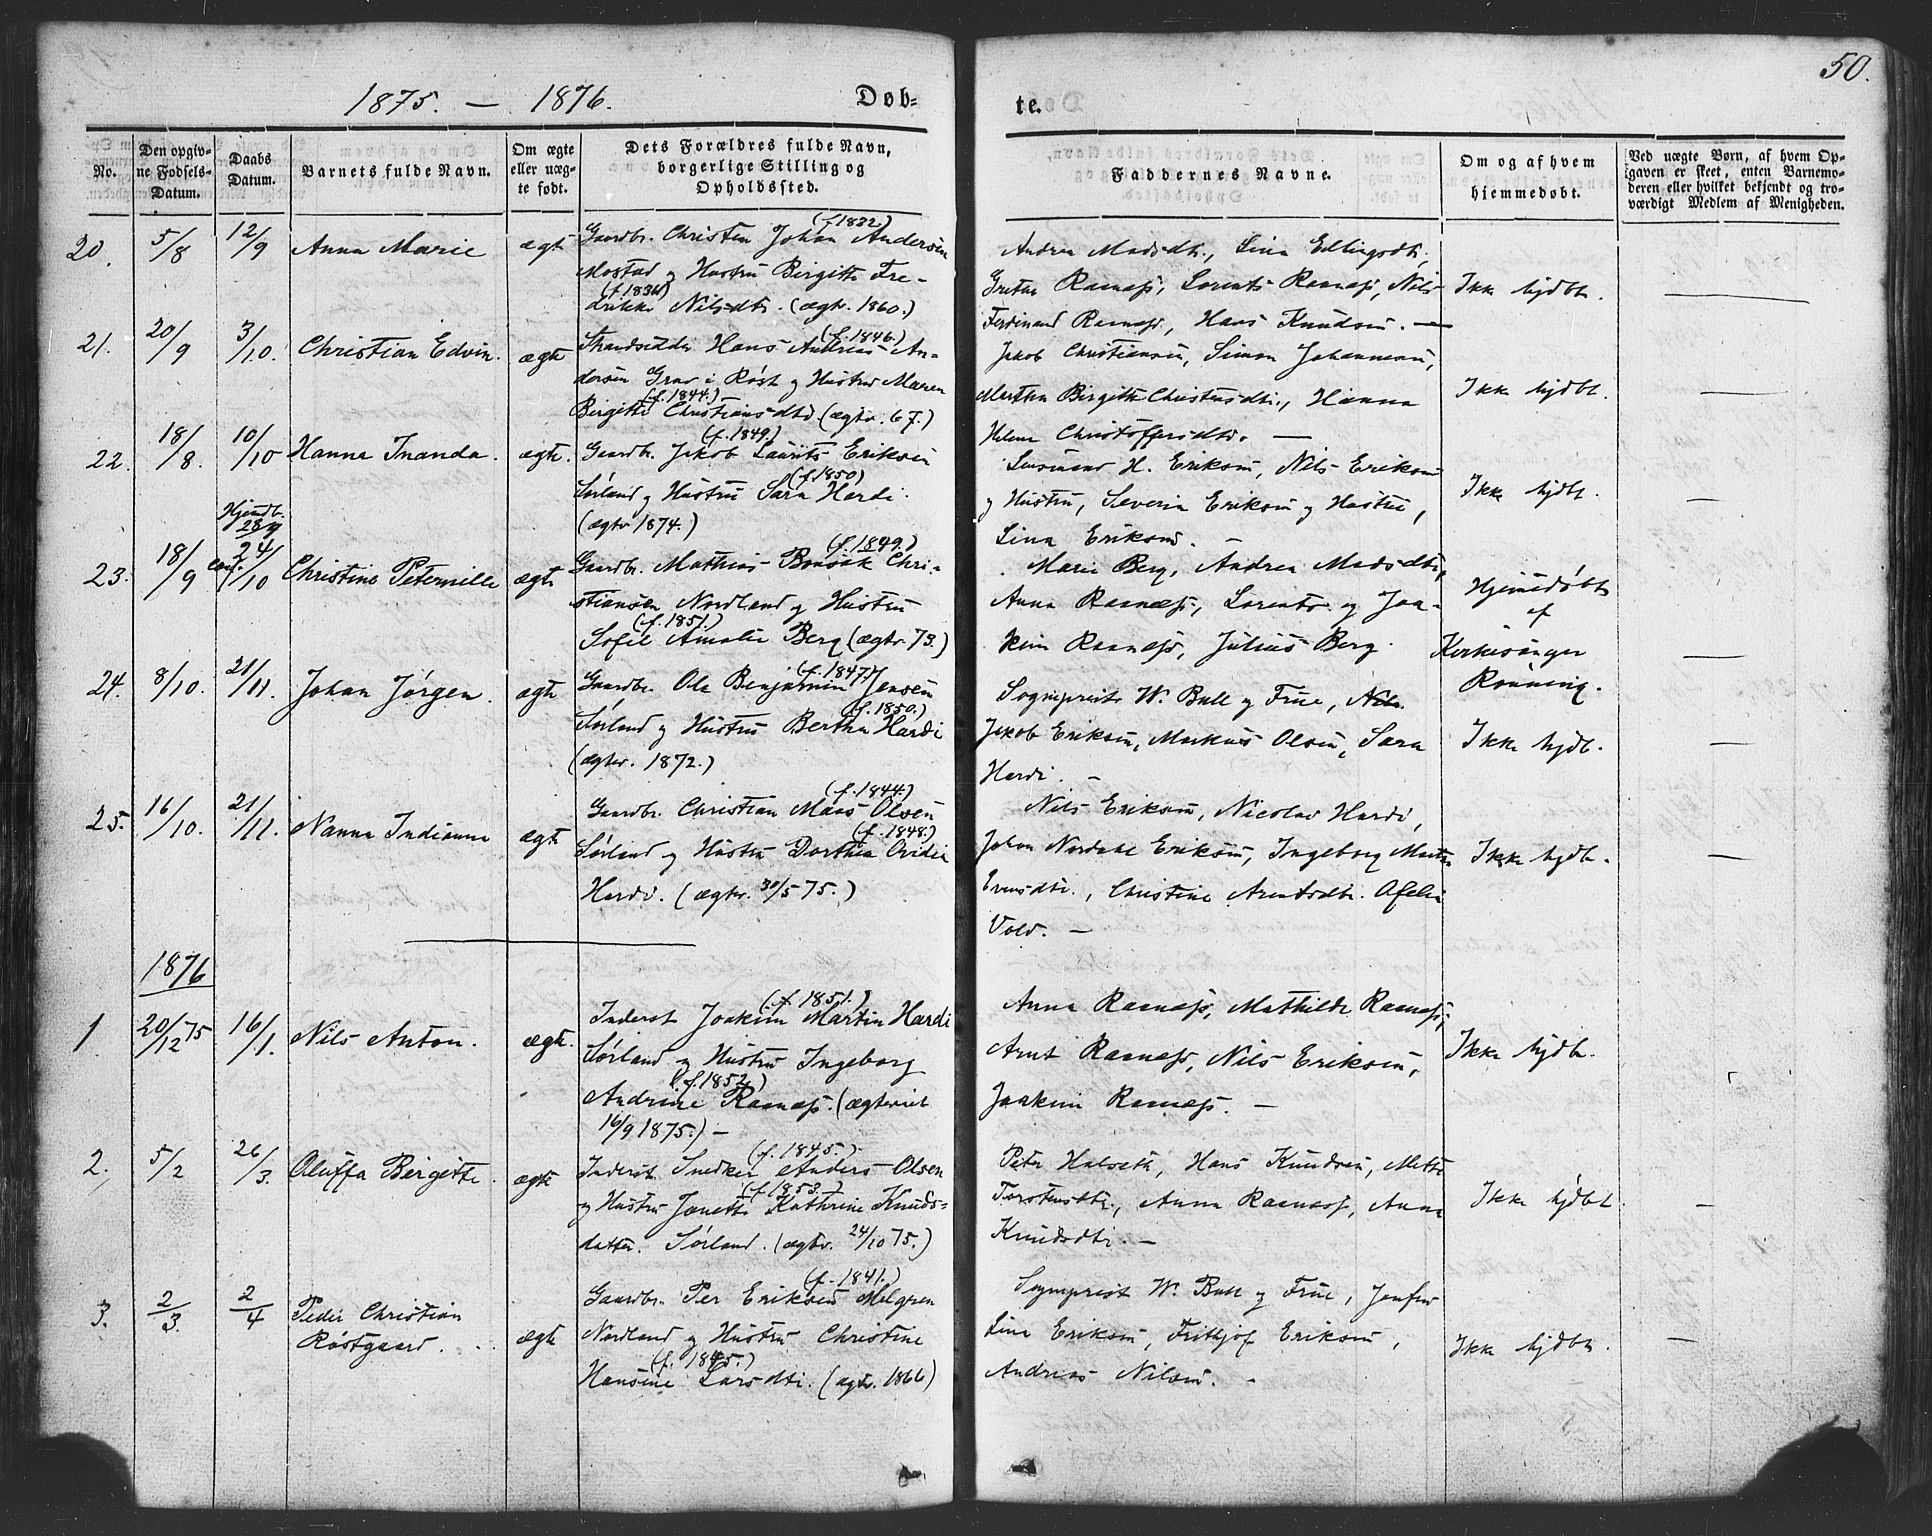 50.
1875. — 1876.
Døb-
te.
No.
Den opgiv-
ne Fødsels-
Datum.
Daabs
Datum.
Barnets fulde Navn.
Om ægte
eller uæg-
te født.
Dets Forældres fulde Navn,
borgerlige Stilling og
Opholdssted.
Faddernes Navne.
Om og af hvem
hjemmedøbt.
Ved uægte Børn, af hvem Op-
gaven er skeet, enten Barnemo-
deren eller hvilket bekjendt og tro-
værdigt Medlem af Menigheden.
20. 5/8 12/9 Anna Marie ægte
(f. 1832)
Gaardbr. Christen Johan Andersen
Mostad og Hustru Birgitte Fre-
(f. 1834)
drikke Nilsdtr. (ægtv. 1860.)
Andrea Madsdtr., Lina Ellingsdtr,
Grethe Rasnæss, Lorents Rasnæss, Nils
Ferdinand Rasnæss, Hans Knudsen. —
Ikke hjdbt. —
21. 20/9 3/10. Christian Edvin. ægte
(f. 1846.)
Strandsidder Hans Andreas An-
dersen Grav i Røst og Hustru Maren
(f. 1844.)
Birgitte Christiansdtr (ægtv. 67.)
Jakob Christiansen, Simon Johannesen,
Martha Birgitte Christensdtr., Hanna
Helene Christoffersdtr. —
Ikke hjdbt. —
22. 18/8. 10/10 Hanna Inanda. ægte.
(f. 1849)
Gaardbr. Jakob Laurits Eriksen
(f. 1850)
Sørland og Hustru Sara Hardi.
(ægtv 1874.)
Lensmand H. Eriksen, Nils Eriksen
og Hustru, Severin Eriksen og Hustru,
Lina Eriksen. —
Ikke hjdbt. —
23. 18/9
Hjemdb.
28/9
conf. 24/10 Christine Peternille ægte
(f. 1849.)
Gaardbr. Mathias Bonsak Chri-
stiansen Nordland og Hustru
(f. 1851.)
Sofie Amalie Berg (ægtv. 73.)
Marie Berg, Andrea Madsdtr,
Anna Rasnæss, Lorents og Joa-
kim Rasnæss, Julius Berg.
Hjemmedøbt
af
Kirkesanger
Rønning. —
24. 8/10. 21/11. Johan Jørgen. ægte
(f. 1847)
Gaardbr. Ole Benjamin Jensen
(f. 1850.)
Sørland og Hustru Bertha Hardi
(ægtv. 1872.)
Sogneprest W. Bull og Frue,
Jakob Eriksen, Markus Olsen, Sara
Hardi. —
Ikke hjdb. —
25. 16/10. 21/11. Nanna Indianna ægte
(f. 1844.)
Gaardbr. Christian Maas Olsen
(f. 1848.)
Sørland og Hustru Dorthea Ovidia
Hardi. (ægtv. 30/5 75.)
Nils Eriksen, Nicolav Hardi,
Johan Nordahl Eriksen, Ingeborg
Evensdtr., Christine Arentsdtr. Ofelia
Vold. —
Ikke hjdb. —
1876
1 20/12 75 16/1. Nils Anton. ægte.
(f. 1851.)
Inderst Joakim Martin Hardi
Sørland og Hustru Ingeborg
(f. 1852)
Andrine Rasnæss. (ægteviet
16/9 1875.) —
Anna Rasnæss, Mathilde Rasnæss,
Arnt Rasnæss, Nils Eriksen,
Joakim Rasnæss. —
Ikke hjdb.
2. 5/2 26/3. Oluffa Birgitte. ægte
(f. 1845.)
Inderst. Snedker Anders Olsen
(f. 1853.)
og Hustru Janette Kathrine Knuds-
datter. Sørland. (ægtv. 24/10 75.)
Peter Halseth, Hans Knudsen, Mette
Torstensdtr., Anna Rasnæss, Anna
Knudsdtr. —
Ikke hjdbt. —
3. 2/3. 2/4 Peder Christian
Røstgaard. ægte
(f. 1841.)
Gaardbr. Per Eriksen Melgren
Nordland og Hustru Christine
(f. 1845.)
Hansine Larsdtr. (ægtv. 1866)
Sogneprest W. Bull og Frue, Jomfru
Lina Eriksen, Frithjof Eriksen,
Andreas Nilsen. —
Ikke hjdbt. —